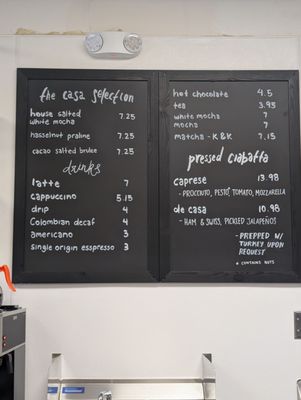 the casa selection
house salted
white mocha 7.25
hasselnut praline 7.25
cacao salted brulee 7.25
drinks
latte 7
cappuccino 5.15
drip 4
Colombian decaf 4
americano 3
single origin esspresso 3
hot chocolate 4.5
tea 3.95
white mocha 7
mocha 7
matcha - K & K 7.15
pressed ciabatta
caprese 13.98
- PROCCUITO, PESTO, TOMATO, MOZZARELLA
de casa 10.98
- HAM & SWISS, PICKLED JALAPEÑOS
- PREPPED W/
TURKEY UPON
REQUEST
* CONTAINS NUTS